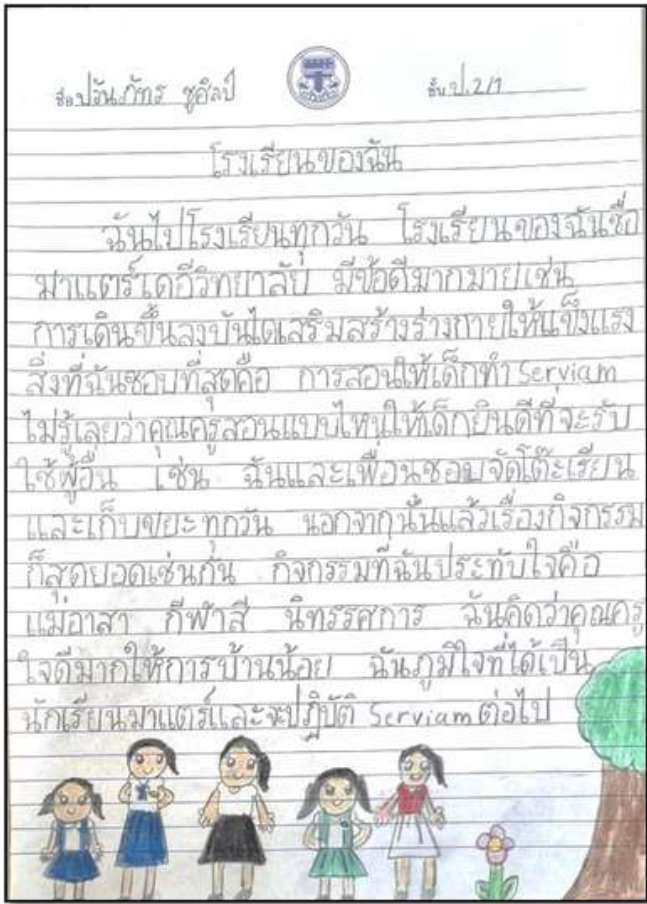 ชื่อ ปวันภัทร ชูศิลป์ ชั้น ป.2/1
โรงเรียนของฉัน
ฉันไปโรงเรียนทุกวัน โรงเรียนของฉันชื่อ
มาแตร์เดอีวิทยาลัย มีข้อดีมากมายเช่น
การเดินขึ้นลงบันไดเสริมสร้างร่างกายให้แข็งแรง
สิ่งที่ฉันชอบที่สุดคือ การสอนให้เด็กทำ Serviam
ไม่รู้เลยว่าคุณครูสอนแบบไหนให้เด็กยินดีที่จะรับ
ใช้ผู้อื่น เช่น ฉันและเพื่อนชอบจัดโต๊ะเรียน
และเก็บขยะทุกวัน นอกจากนั้นแล้วเรื่องกิจกรรม
ก็สุดยอดเช่นกัน กิจกรรมที่ฉันประทับใจคือ
แม่อาสา กีฬาสี นิทรรศการ ฉันคิดว่าคุณครู
ใจดีมากให้การบ้านน้อย ฉันภูมิใจที่ได้เป็น
นักเรียนมาแตร์และจะปฏิบัติ Serviam ต่อไป